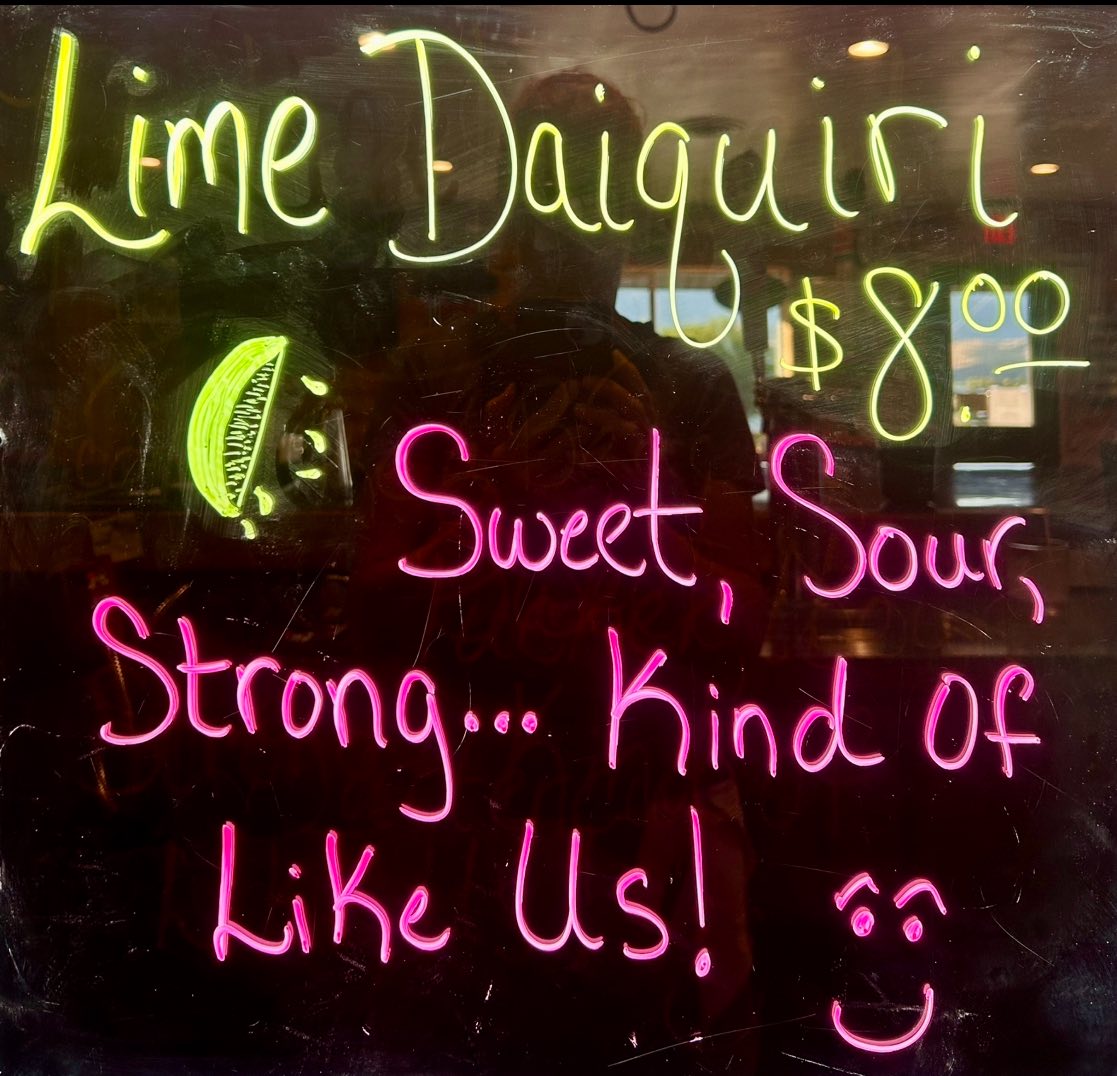 Lime Daiquiri
$8.00
Sweet, Sour,
Strong... Kind Of
Like Us!